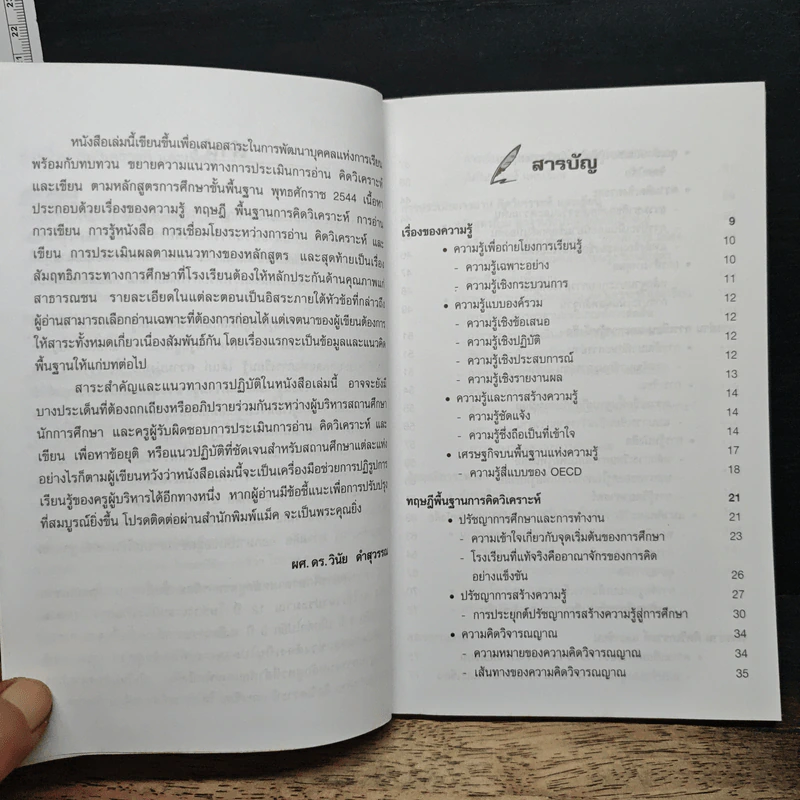 22
21
หนังสือเล่มนี้เขียนขึ้นเพื่อเสนอสาระในการพัฒนาบุคคลแห่งการเรียน
พร้อมกับทบทวน ขยายความแนวทางการประเมินการอ่าน คิดวิเคราะห์
และเขียน ตามหลักสูตรการศึกษาขั้นพื้นฐาน พุทธศักราช 2544 เนื้อหา
ประกอบด้วยเรื่องของความรู้ ทฤษฎี พื้นฐานการคิดวิเคราะห์ การอ่าน
การเขียน การรู้หนังสือ การเชื่อมโยงระหว่างการอ่าน คิดวิเคราะห์ และ
เขียน การประเมินผลตามแนวทางของหลักสูตร และสุดท้ายเป็นเรื่อง
สัมฤทธิภาระทางการศึกษาที่โรงเรียนต้องให้หลักประกันด้านคุณภาพแก่
สาธารณชน รายละเอียดในแต่ละตอนเป็นอิสระภายใต้หัวข้อที่กล่าวถึง
ผู้อ่านสามารถเลือกอ่านเฉพาะที่ต้องการก่อนได้ แต่เจตนาของผู้เขียนต้องการ
ให้สาระทั้งหมดเกี่ยวเนื่องสัมพันธ์กัน โดยเรื่องแรกจะเป็นข้อมูลและแนวคิด
พื้นฐานให้แก่บทต่อไป
สาระสำคัญและแนวทางการปฏิบัติในหนังสือเล่มนี้ อาจจะยังมี
บางประเด็นที่ต้องถกเถียงหรืออภิปรายร่วมกันระหว่างผู้บริหารสถานศึกษา
นักการศึกษา และครูผู้รับผิดชอบการประเมินการอ่าน คิดวิเคราะห์ และ
เขียน เพื่อหาข้อยุติ หรือแนวปฏิบัติที่ชัดเจนสำหรับสถานศึกษาแต่ละแห่ง
อย่างไรก็ตามผู้เขียนหวังว่าหนังสือเล่มนี้จะเป็นเครื่องมือช่วยการปฏิรูปการ
เรียนรู้ของครูผู้บริหารได้อีกทางหนึ่ง หากผู้อ่านมีข้อชี้แนะเพื่อการปรับปรุง
ที่สมบูรณ์ยิ่งขึ้น โปรดติดต่อผ่านสำนักพิมพ์แม็ค จะเป็นพระคุณยิ่ง
ผศ. ดร. วินัย ดำสุวรรณ
สารบัญ
เรื่องของความรู้ 9
• ความรู้เพื่อถ่ายโยงการเรียนรู้ 10
- ความรู้เฉพาะอย่าง 10
- ความรู้เชิงกระบวนการ 11
• ความรู้แบบองค์รวม 12
- ความรู้เชิงข้อเสนอ 12
- ความรู้เชิงปฏิบัติ 12
- ความรู้เชิงประสบการณ์ 12
- ความรู้เชิงรายงานผล 13
• ความรู้และการสร้างความรู้ 14
- ความรู้ชัดแจ้ง 14
- ความรู้ซึ่งถือเป็นที่เข้าใจ 14
• เศรษฐกิจบนพื้นฐานแห่งความรู้ 17
- ความรู้สี่แบบของ OECD 18
ทฤษฎีพื้นฐานการคิดวิเคราะห์ 21
• ปรัชญาการศึกษาและการทำงาน 21
- ความเข้าใจเกี่ยวกับจุดเริ่มต้นของการศึกษา 23
- โรงเรียนที่แท้จริงคืออาณาจักรของการคิด
อย่างแข็งขัน 26
• ปรัชญาการสร้างความรู้ 27
- การประยุกต์ปรัชญาการสร้างความรู้สู่การศึกษา 30
• ความคิดวิจารณญาณ 34
- ความหมายของความคิดวิจารณญาณ 34
- เส้นทางของความคิดวิจารณญาณ 35